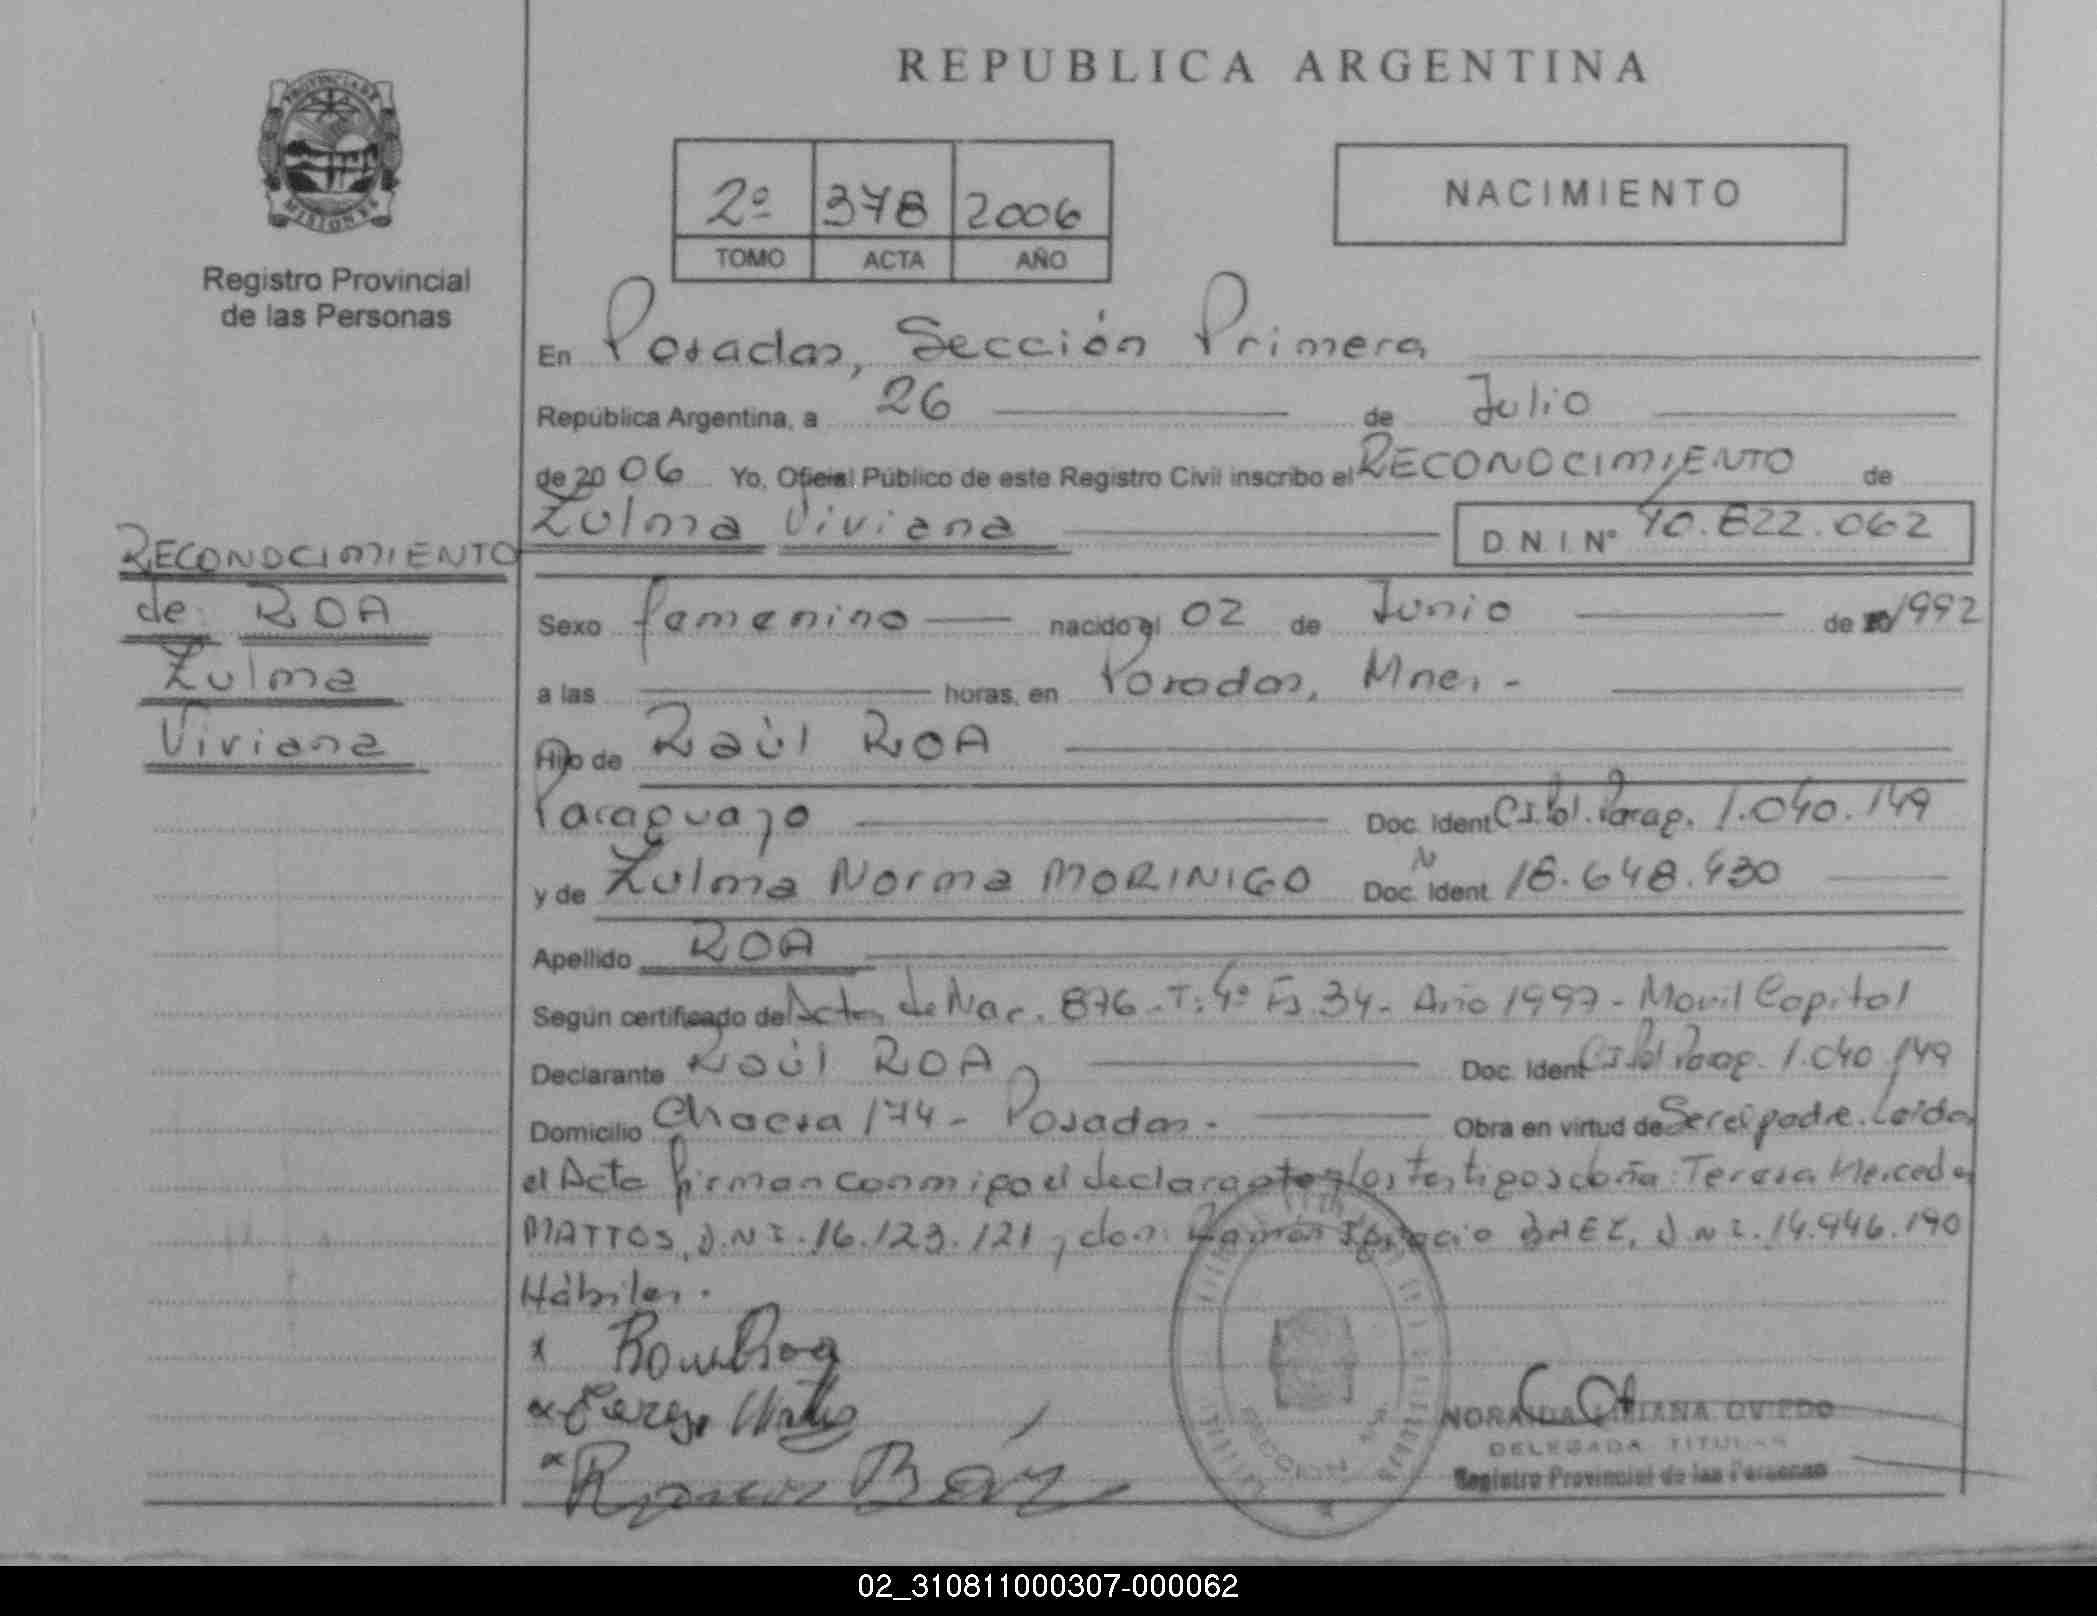 REPUBLICA ARGENTINA
PROVINCIA DE
MISIONES
Registro Provincial
de las Personas
2º 378 2006
TOMO ACTA AÑO
NACIMIENTO
En Posadas, Sección Primera
República Argentina, a 26 de Julio
de 2006 Yo, Oficial Público de este Registro Civil inscribo el RECONOCIMIENTO de
Zulma Viviana D.N.I. Nº 40.822.062
RECONOCIMIENTO
de ROA
Zulma
Viviana
Sexo femenino nacido el 02 de Junio de 1992
a las horas, en Posadas, Mnes.-
Hijo de Raúl ROA
Paraguayo Doc. Ident C.I. Pol. Parag. 1.040.149
y de Zulma Norma MORINIGO Doc. Ident. 18.648.430
Apellido ROA
Según certificado de Acta de Nac. 876 - T: 4º Fs. 34 - Año 1997 - Movil Capital
Declarante Raúl ROA Doc. Ident C.I. Pol. Parag. 1.040.149
Domicilio Chacra 174 - Posadas. - Obra en virtud de Ser el padre. Leida
el Acta firman conmigo el declarante y los testigos doña: Teresa Mercedes
MATTOS, D.N.I. 16.123.121 y don: Ramón Ignacio BAEZ, D.N.I. 14.946.190
Hábiles.
NORAIDA LILIANA OVIEDO
DELEGADA TITULAR
Registro Provincial de las Personas
02_310811000307-000062